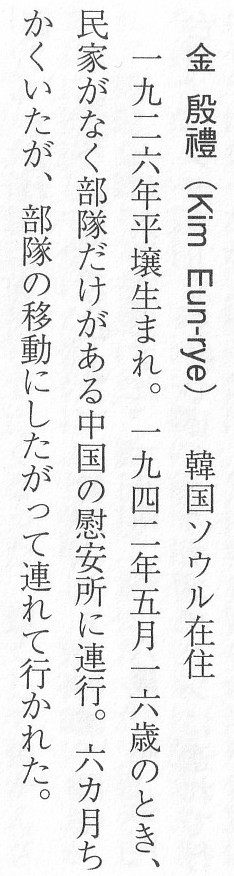 金 殷禮（Kim Eun-rye） 韓国ソウル在住
一九二六年平壌生まれ。一九四二年五月一六歳のとき、
民家がなく部隊だけがある中国の慰安所に連行。六カ月ち
かくいたが、部隊の移動にしたがって連れて行かれた。